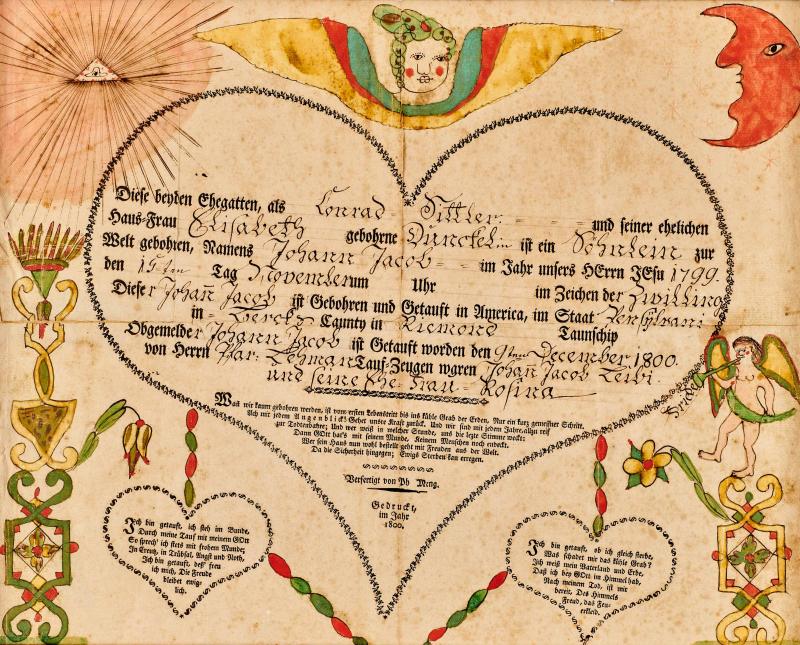 Diese beyden Ehegatten, als Conrad Sittler und seiner ehelichen
Haus-Frau Elisabeth gebohrne Dünckelin ist ein Söhnlein zur
Welt gebohren, Namens Johann Jacob im Jahr unsers HErrn JEsu 1799.
den 15ten Tag November um Uhr im Zeichen der Zwilling
Dieser Johan̄ Jacob ist Gebohren und Getauft in America, im Staat Pensylvani
in Bercks Caunty in Riemond Taunschip
Obgemelder Johann Jacob ist Getauft worden den 9ten December 1800.
von Herrn Par: Lehman Tauf-Zeugen waren Johan̄ Jacob Zeibi
und seine Ehe frau Rosina
Wañ wir kaum gebohren werden, ist vom ersten Lebenstritt bis ins kühle Grab der Erden, Nur ein kurz gemeßner Schritt.
Ach mit jedem Augenblick! Gehet unsre Kraft zurück, Und wir sind mit jedem Jahre, allzu reif
zur Todtenbahre; Und wer weiß in welcher Stunde, uns die letzte Stimme weckt:
Dann GOtt hat's mit seinem Munde, Keinem Menschen noch entdeckt.
Wer sein Haus nun wohl bestellt geht mit Freuden aus der Welt.
Da die Sicherheit hingegen; Ewigs Sterben kan erregen.
Verfertigt von Ph Meng.
Gedruckt,
im Jahr
1800.
Ich bin getauft, ich steh im Bunde,
Durch meine Tauf mit meinem GOtt
So sprech' ich stets mit frohem Munde;
In Creutz, in Trübsal, Angst und Noth,
Ich bin getauft, deß' freu
ich mich, Die Freude
bleibet ewig-
lich.
Ich bin getauft, ob ich gleich sterbe,
Was schadet mir das kühle Grab?
Ich weiß mein Vaterland und Erbe,
Daß ich bey GOtt im Himmel hab,
Nach meinem Tod, ist mir
bereit, Des Himmels
Freud, das Fey-
erkleid.